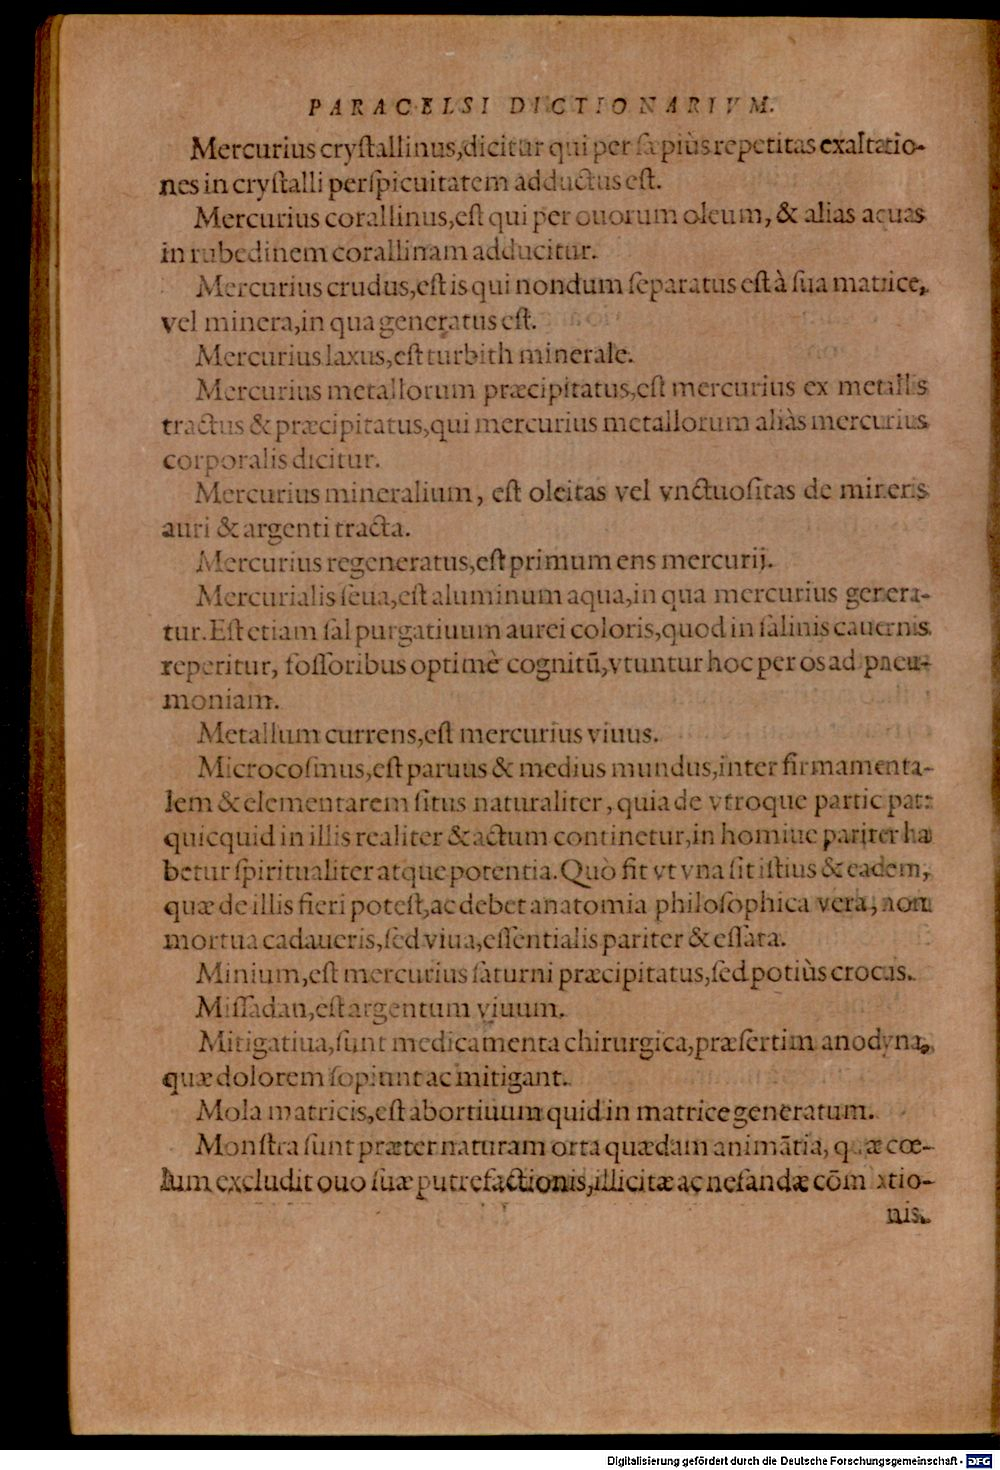 PARACELSI DICTIONARIVM.
Mercurius cryſtallinus, dicitur qui per ſæpiùs repetitas exaltatio-
nes in cryſtalli perſpicuitatem adductus eſt.
Mercurius corallinus, eſt qui per ouorum oleum, & alias aquas
in rubedinem corallinam adducitur.
Mercurius crudus, eſt is qui nondum ſeparatus eſt à ſua matrice,
vel minera, in qua generatus eſt.
Mercurius laxus, eſt turbith minerale.
Mercurius metallorum præcipitatus, eſt mercurius ex metallis
tractus & præcipitatus, qui mercurius metallorum aliàs mercurius
corporalis dicitur.
Mercurius mineralium, eſt oleitas vel vnctuoſitas de mineris
auri & argenti tracta.
Mercurius regeneratus, eſt primum ens mercurij.
Mercurialis ſeua, eſt aluminum aqua, in qua mercurius genera-
tur. Eſt etiam ſal purgatiuum aurei coloris, quod in ſalinis cauernis
reperitur, foſſoribus optimè cognitū, vtuntur hoc per os ad pneu-
moniam.
Metallum currens, eſt mercurius viuus.
Microcoſmus, eſt paruus & medius mundus, inter firmamenta-
lem & elementarem ſitus naturaliter, quia de vtroque partic pat:
quicquid in illis realiter & actum continetur, in homine pariter ha
betur ſpiritualiter atque potentia. Quò fit vt vna ſit iſtius & eadem,
quæ de illis fieri poteſt, ac debet anatomia philoſophica vera, non
mortua cadaueris, ſed viua, eſſentialis pariter & eſſata.
Minium, eſt mercurius ſaturni præcipitatus, ſed potiùs crocus.
Miſſadan, eſt argentum viuum.
Mitigatiua, ſunt medicamenta chirurgica, præſertim anodyna,
quæ dolorem ſopiunt ac mitigant.
Mola matricis, eſt abortiuum quid in matrice generatum.
Monſtra ſunt præter naturam orta quædam animātia, quæ cœ-
lum excludit ouo ſuæ putrefactionis, illicitæ ac nefandæ cōmixtio-
nis.
Digitalisierung gefördert durch die Deutsche Forschungsgemeinschaft - DFG